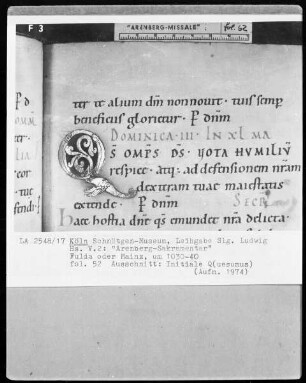 F 3
"ARENBERG-MISSALE"
fol. 52
ter te alium dm non nouit · tuis semp
beneficiis glorietur · P dnm
DOMINICA · III · IN XL MA
QS OMPS DS · UOTA HUMILIU
respice · atq: ad defensionem nram
dexteram tuae maiestatis
extende · P dnm SECR
Haec hostia dne qs emundet nra delicta ·
LA 2548/17 Köln Schnütgen-Museum, Leihgabe Slg. Ludwig
Hs. V.2: "Arenberg-Sakramentar"
Fulda oder Mainz, um 1030-40
fol. 52 Ausschnitt: Initiale Q(uesumus)
(Aufn. 1974)